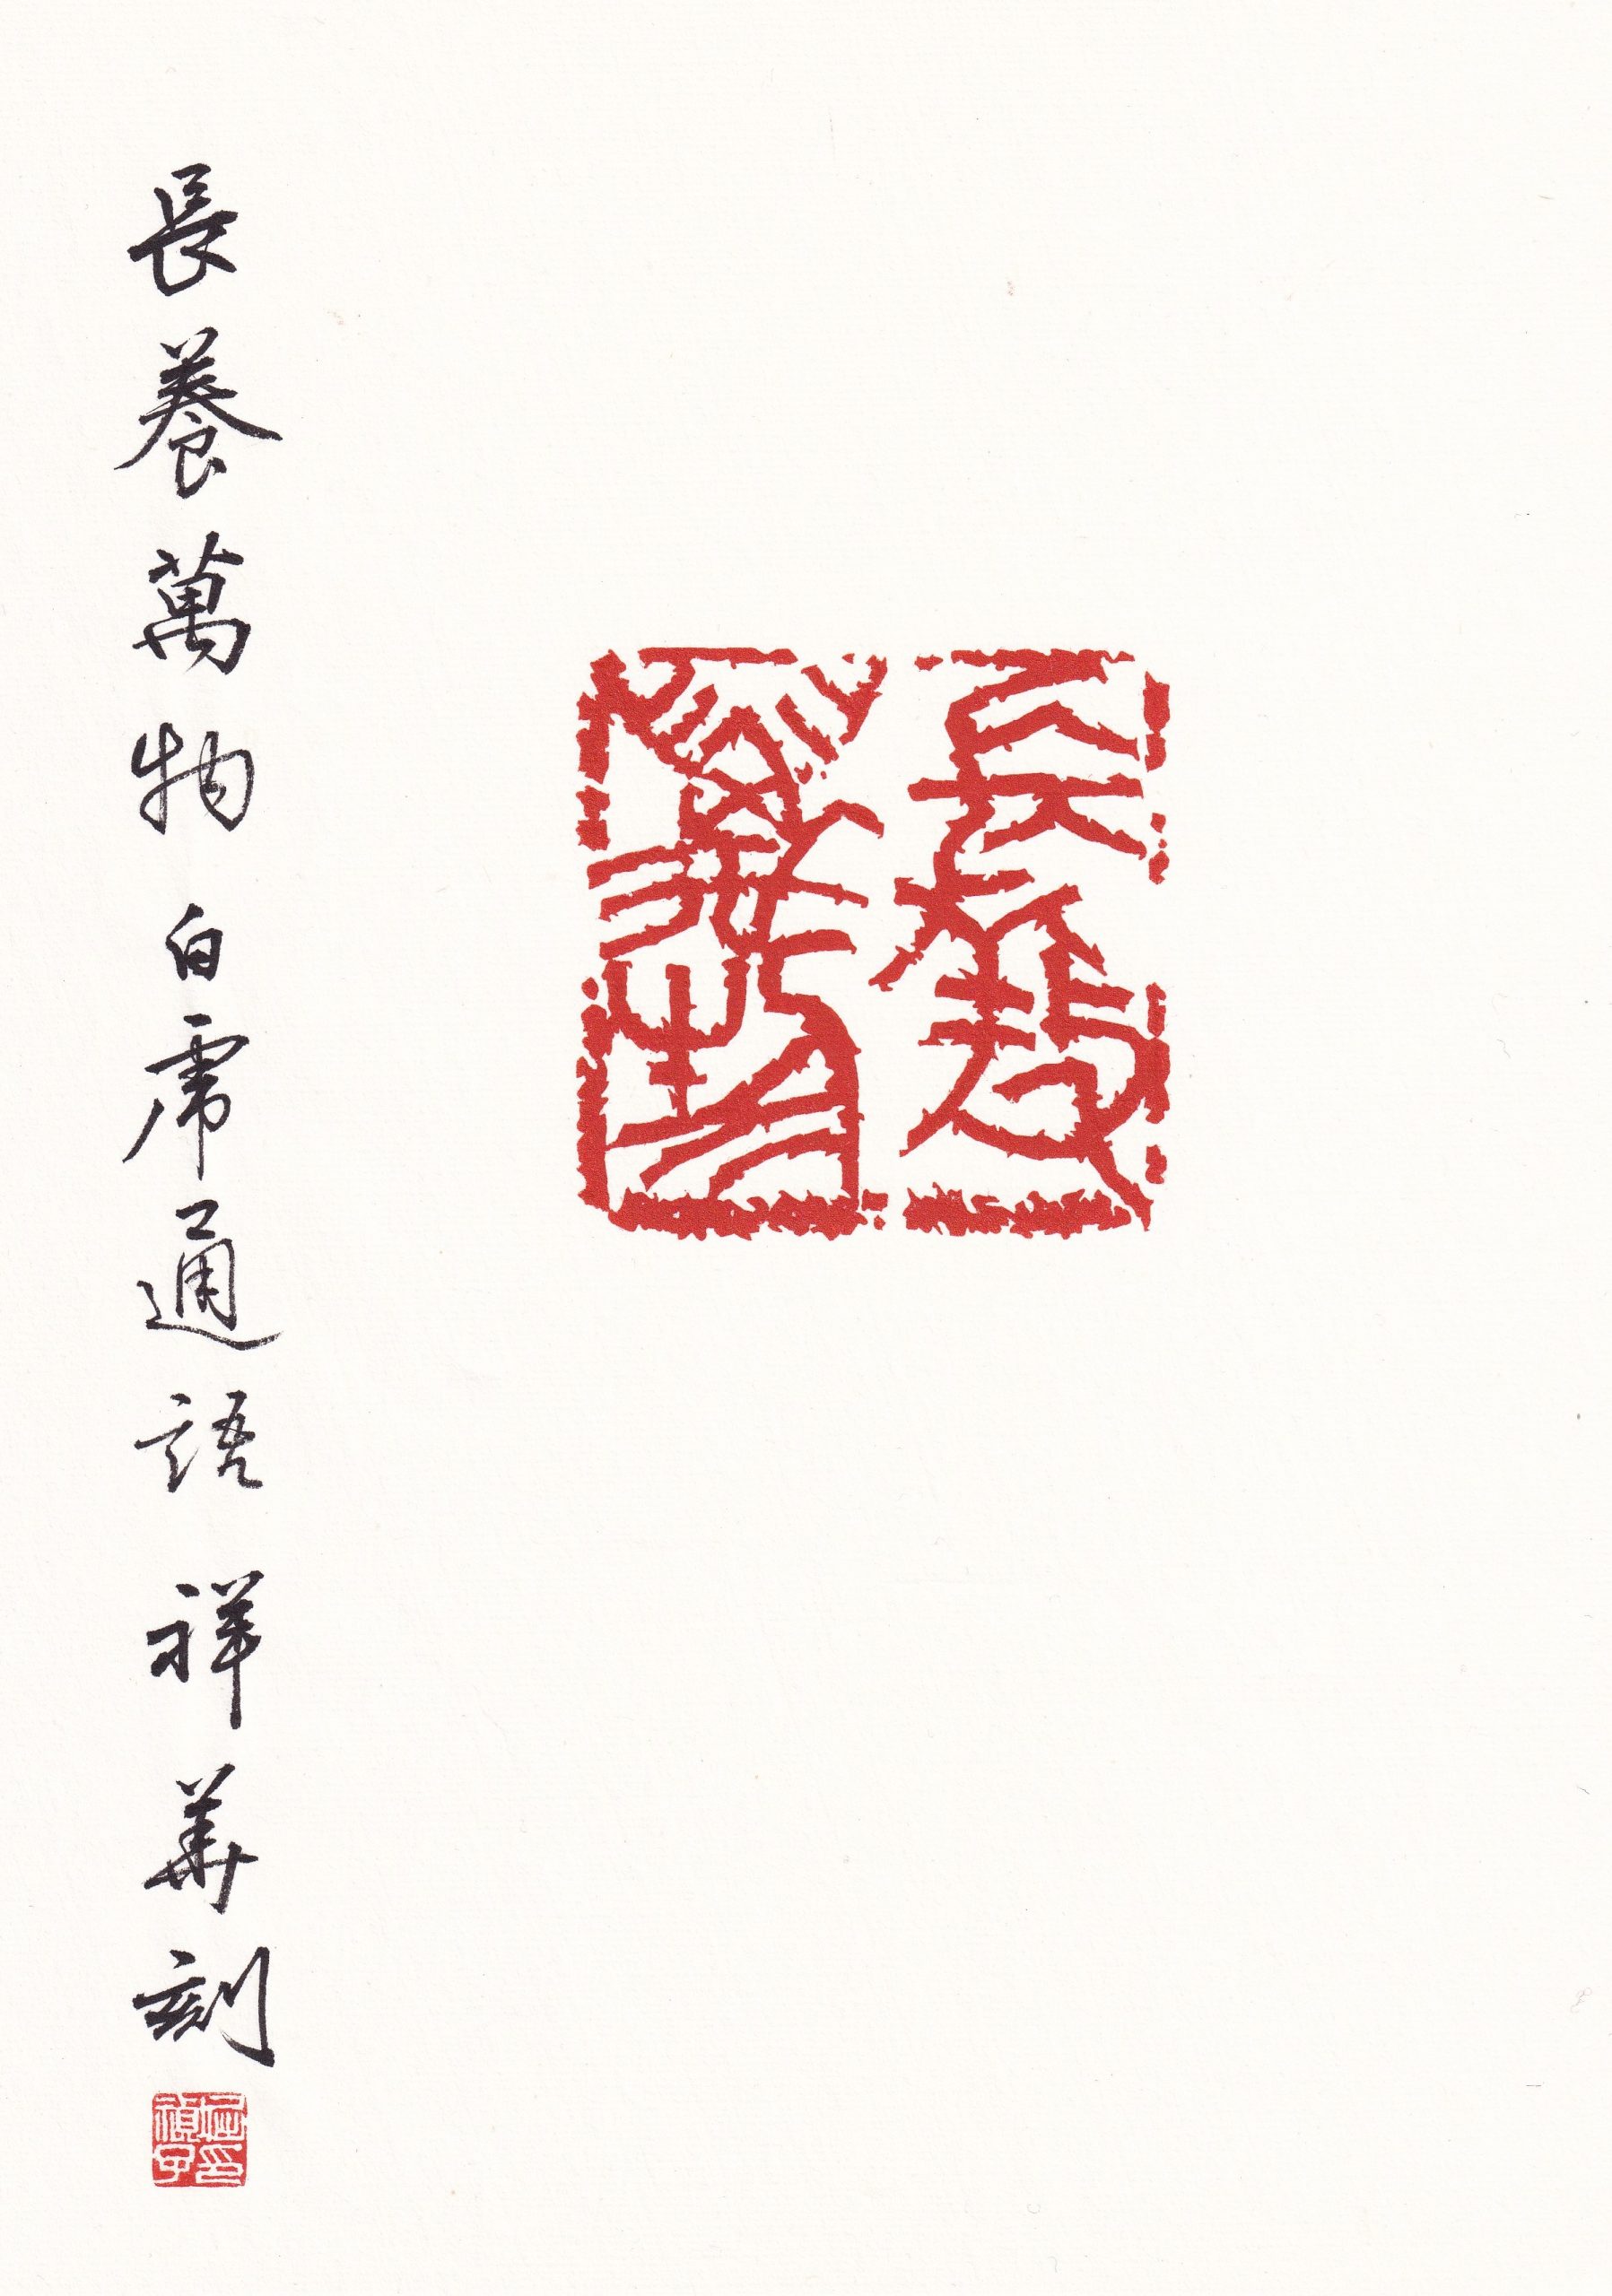 長養
萬物
長養萬物 白虎通語 祥華刻